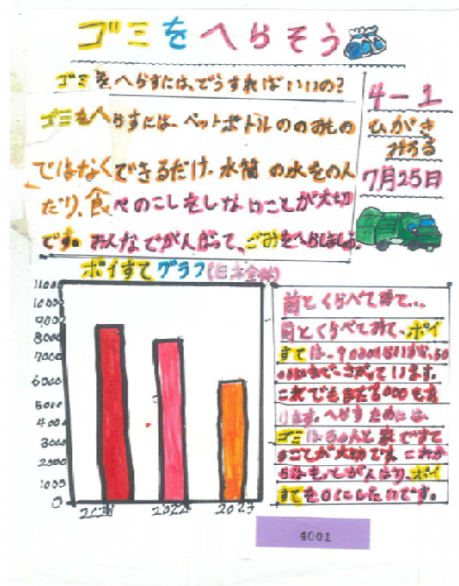 ゴミをへらそう
ゴミをへらすには、どうすればいいの?
4-1
ひがき
みちる
7月25日
ゴミをへらすには、ペットボトルののみもの
ではなくできるだけ、水筒の水をのん
だり、食べのこしをしないことが大切
です。みんなでがんばって、ごみをへらしましょう
ポイすてグラフ(日本全体)
11000
10000
9000
8000
7000
6000
5000
4000
3000
2000
1000
0
2021
2022
2023
前とくらべて見て...
前とくらべてみて、ポイ
すては、
さがっています。
これでもまだ6000もあ
ります。へらすためには
ゴミはちゃんと家ですて
ることが大切です。これか
らはもっとがんばり、ポイ
すてを0にしたいです。
4001